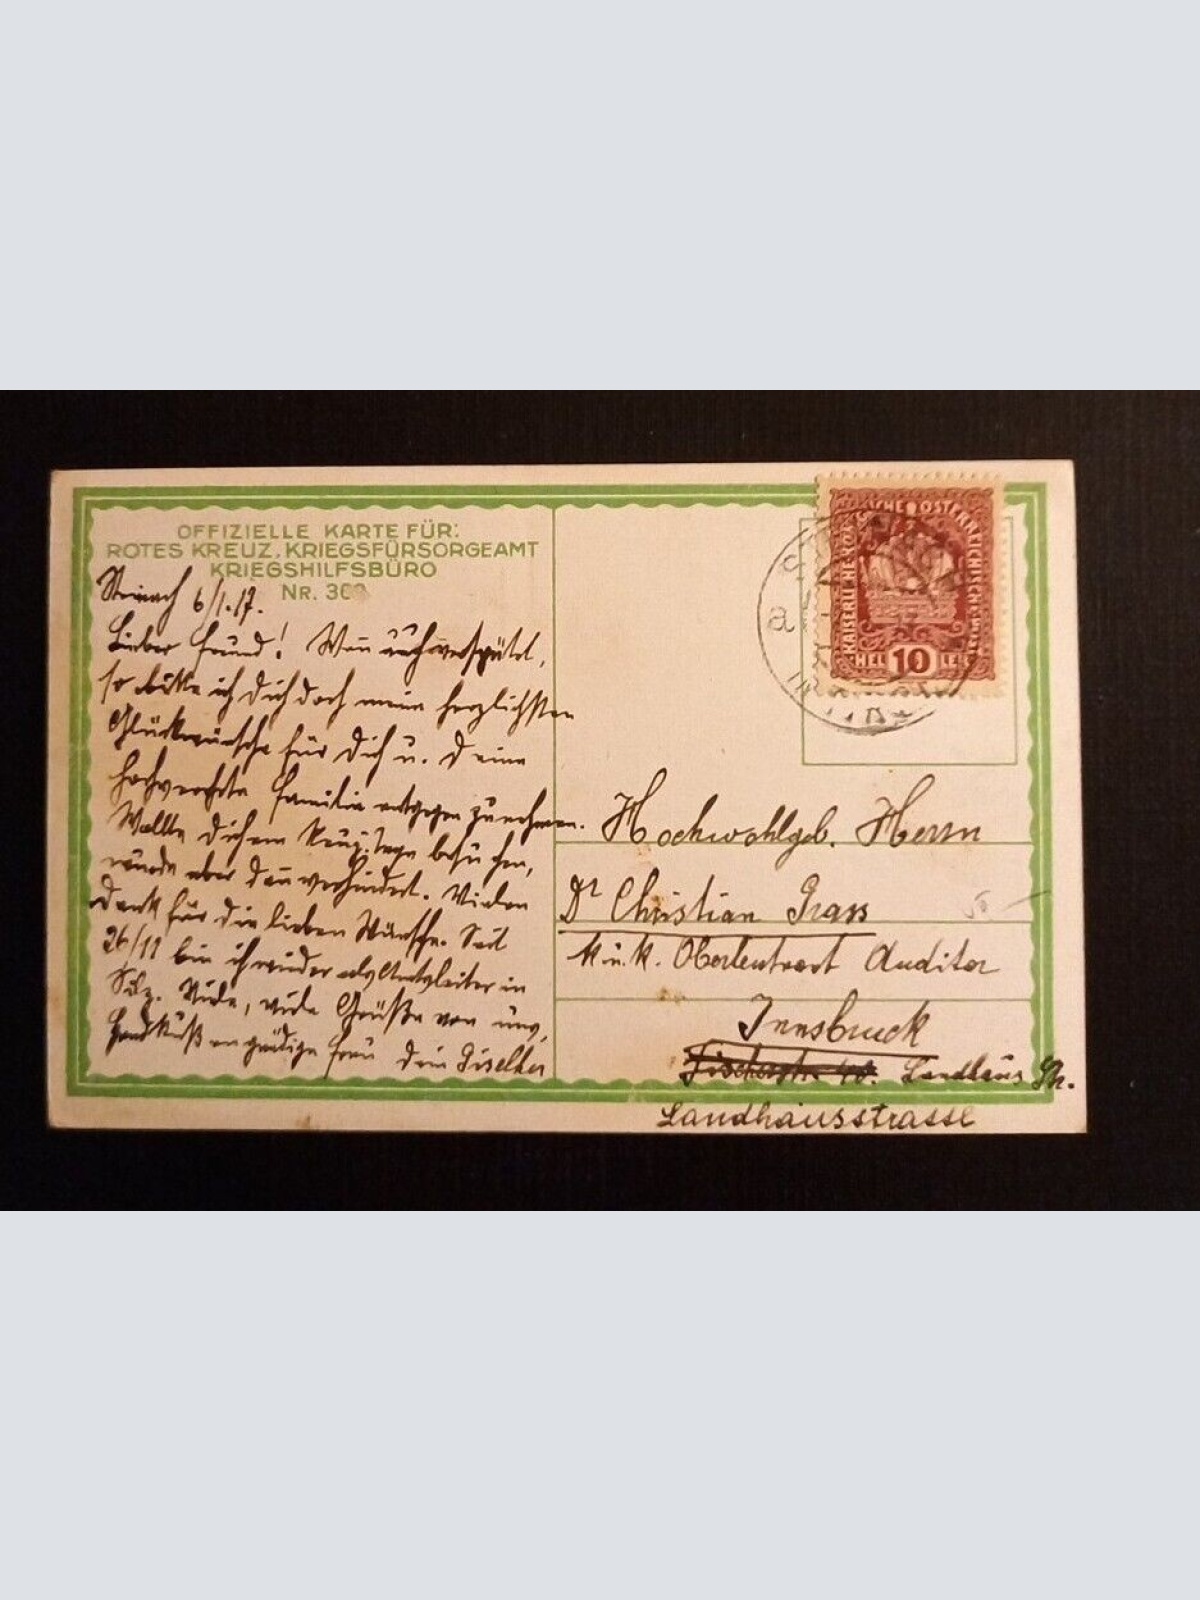 OFFIZIELLE KARTE FÜR:
ROTES KREUZ, KRIEGSFÜRSORGEAMT
KRIEGSHILFSBÜRO
NR. 30
Steinach 6/1.17.
Lieber Freund! Weñ auch verspätet,
so bitte ich Dich doch meine herzlichsten
Glückwünsche für Dich u. Deine
hochverehrte Familie entgegen zu nehmen.
Wollte Dich am besuchen,
wurde aber dañ verhindert. Vielen
Dank für die lieben Wünsche. Seit
26/11 bin ich wieder als Amtsleiter in
Silz. Viele, viele Grüße von uns,
Handkuß an gnädige Frau Dein Giselher
KAISERLICHE KÖNIGLICHE ÖSTERREICHISCHE POST
HELLER
10
a
Hochwohlgeb. Herrn
Dr Christian Grass
k.u.k. Oberleutnant Auditor
Innsbruck
Fischerstr. 40. Landhaus
Landhausstrasse